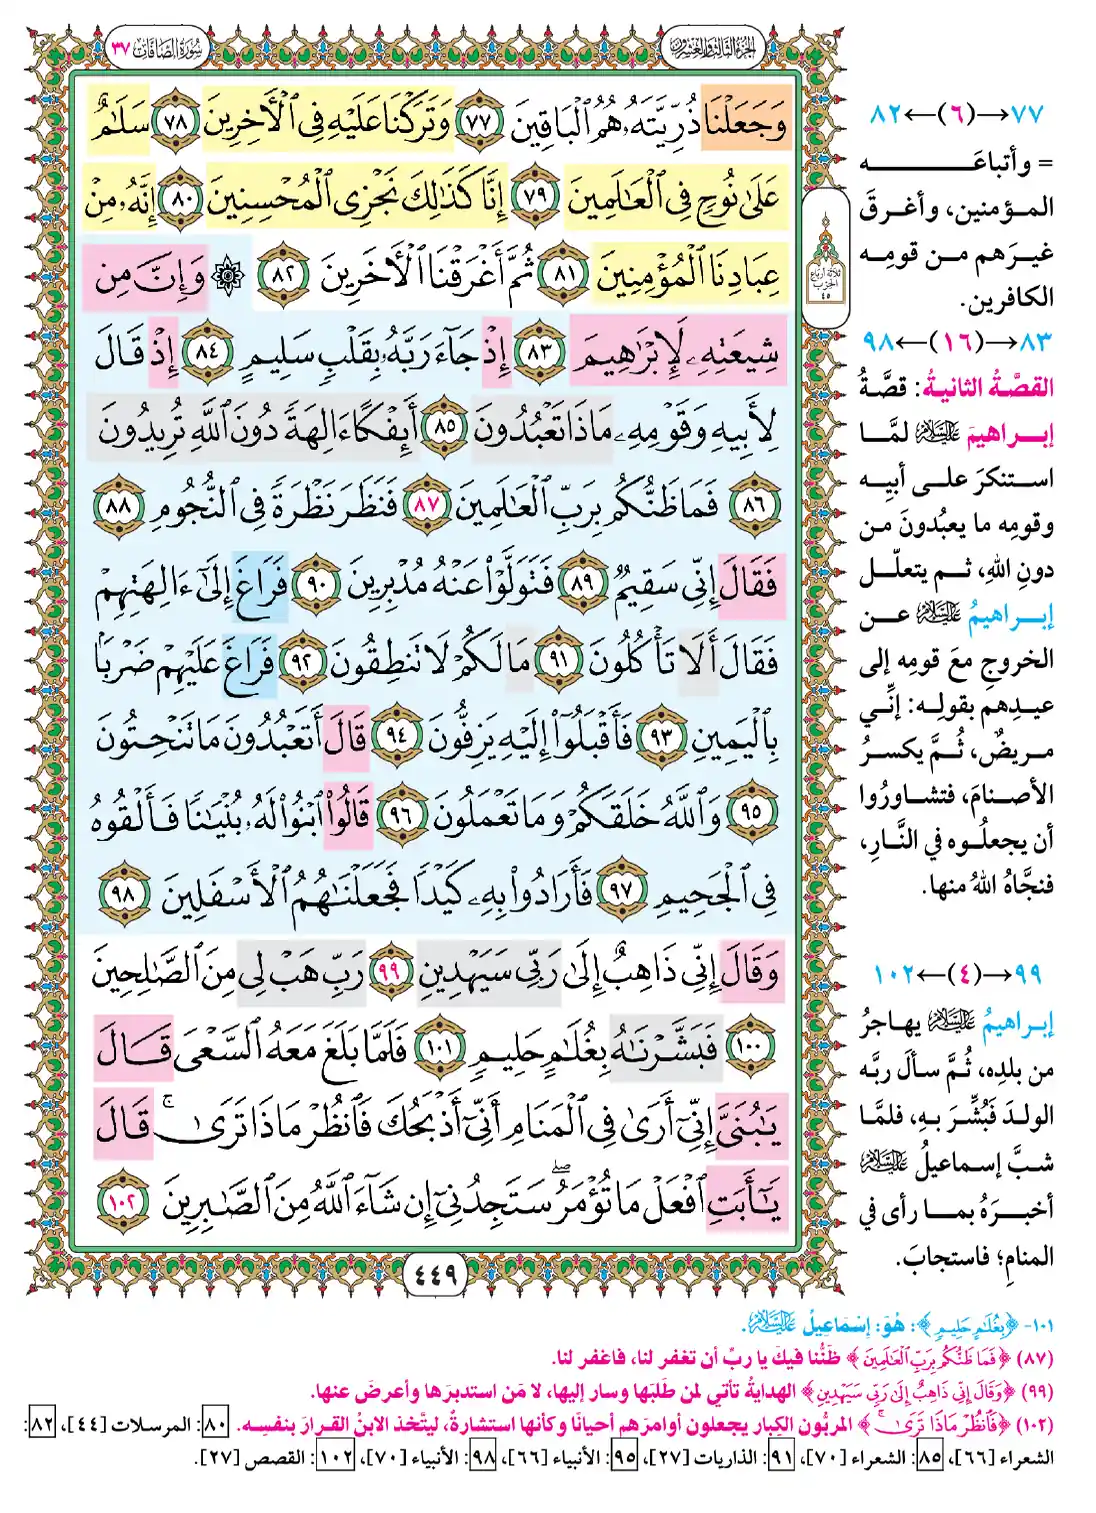 سُورَةُ الصَّافَّات ٣٧
الجُزْءُ الثَّالِثُ وَالعِشْرُونَ
وَجَعَلْنَا ذُرِّيَّتَهُۥ هُمُ ٱلْبَاقِينَ ٧٧ وَتَرَكْنَا عَلَيْهِ فِى ٱلْأَخِرِينَ ٧٨ سَلَٰمٌ
عَلَىٰ نُوحٍ فِى ٱلْعَٰلَمِينَ ٧٩ إِنَّا كَذَٰلِكَ نَجْزِى ٱلْمُحْسِنِينَ ٨٠ إِنَّهُۥ مِنْ
عِبَادِنَا ٱلْمُؤْمِنِينَ ٨١ ثُمَّ أَغْرَقْنَا ٱلْأَخَرِينَ ٨٢ ۞ وَإِنَّ مِن
شِيعَتِهِۦ لَإِبْرَٰهِيمَ ٨٣ إِذْ جَآءَ رَبَّهُۥ بِقَلْبٍ سَلِيمٍ ٨٤ إِذْ قَالَ
لِأَبِيهِ وَقَوْمِهِۦ مَاذَا تَعْبُدُونَ ٨٥ أَئِفْكًا ءَالِهَةً دُونَ ٱللَّهِ تُرِيدُونَ
٨٦ فَمَا ظَنُّكُم بِرَبِّ ٱلْعَٰلَمِينَ ٨٧ فَنَظَرَ نَظْرَةً فِى ٱلنُّجُومِ ٨٨
فَقَالَ إِنِّى سَقِيمٌ ٨٩ فَتَوَلَّوْا۟ عَنْهُ مُدْبِرِينَ ٩٠ فَرَاغَ إِلَىٰٓ ءَالِهَتِهِمْ
فَقَالَ أَلَا تَأْكُلُونَ ٩١ مَا لَكُمْ لَا تَنطِقُونَ ٩٢ فَرَاغَ عَلَيْهِمْ ضَرْبًۢا
بِٱلْيَمِينِ ٩٣ فَأَقْبَلُوٓا۟ إِلَيْهِ يَزِفُّونَ ٩٤ قَالَ أَتَعْبُدُونَ مَا تَنْحِتُونَ
٩٥ وَٱللَّهُ خَلَقَكُمْ وَمَا تَعْمَلُونَ ٩٦ قَالُوا۟ ٱبْنُوا۟ لَهُۥ بُنْيَٰنًا فَأَلْقُوهُ
فِى ٱلْجَحِيمِ ٩٧ فَأَرَادُوا۟ بِهِۦ كَيْدًا فَجَعَلْنَٰهُمُ ٱلْأَسْفَلِينَ ٩٨
وَقَالَ إِنِّى ذَاهِبٌ إِلَىٰ رَبِّى سَيَهْدِينِ ٩٩ رَبِّ هَبْ لِى مِنَ ٱلصَّٰلِحِينَ
١٠٠ فَبَشَّرْنَٰهُ بِغُلَٰمٍ حَلِيمٍ ١٠١ فَلَمَّا بَلَغَ مَعَهُ ٱلسَّعْىَ قَالَ
يَٰبُنَىَّ إِنِّىٓ أَرَىٰ فِى ٱلْمَنَامِ أَنِّىٓ أَذْبَحُكَ فَٱنظُرْ مَاذَا تَرَىٰ ۚ قَالَ
يَٰٓأَبَتِ ٱفْعَلْ مَا تُؤْمَرُ ۖ سَتَجِدُنِىٓ إِن شَآءَ ٱللَّهُ مِنَ ٱلصَّٰبِرِينَ ١٠٢
٤٤٩
ثلاثة أرباع
الحزب
٤٥
٧٧→(٦)←٨٢
= وأتباعَـــه
المؤمنين، وأغرقَ
غيرَهم من قومِه
الكافرين.
٨٣→(١٦)←٩٨
القصَّةُ الثانيةُ: قصَّةُ
إبراهيمَ عليه السلام لمَّا
استنكرَ على أبيِه
وقومِه ما يعبُدونَ من
دونِ اللهِ، ثم يتعلّل
إبراهيمُ عليه السلام عن
الخروجِ معَ قومِه إلى
عيدِهم بقولِه: إنِّي
مريضٌ، ثُمَّ يكسرُ
الأصنامَ، فتشاورُوا
أن يجعلُوه في النَّارِ،
فنجَّاهُ اللهُ منها.
٩٩→(٤)←١٠٢
إبراهيمُ عليه السلام يهاجرُ
من بلدِه، ثُمَّ سألَ ربَّه
الولدَ فبُشِّرَ بهِ، فلمَّا
شبَّ إسماعيلُ عليه السلام
أخبرَهُ بما رأى في
المنامِ؛ فاستجابَ.
١٠١- ﴿بِغُلَٰمٍ حَلِيمٍ﴾: هُوَ: إسْمَاعِيلُ عليه السلام.
(٨٧) ﴿فَمَا ظَنُّكُم بِرَبِّ ٱلْعَٰلَمِينَ﴾ ظنُّنا فيكَ يا ربِّ أن تغفر لنا، فاغفر لنا.
(٩٩) ﴿وَقَالَ إِنِّى ذَاهِبٌ إِلَىٰ رَبِّى سَيَهْدِينِ﴾ الهدايةُ تأتي لمن طلبَها وسار إليها، لا مَن استدبرَها وأعرضَ عنها.
(١٠٢) ﴿فَٱنظُرْ مَاذَا تَرَىٰ ۚ﴾ المربُّون الكبار يجعلون أوامرَهم أحيانًا وكأنها استشارةٌ، ليتَّخذ الابنُ القرارَ بنفسِه. ٨٠: المرسلات [٤٤]، ٨٢:
الشعراء [٦٦]، ٨٥: الشعراء [٧٠]، ٩١: الذاريات [٢٧]، ٩٥: الأنبياء [٦٦]، ٩٨: الأنبياء [٧٠]، ١٠٢: القصص [٢٧].